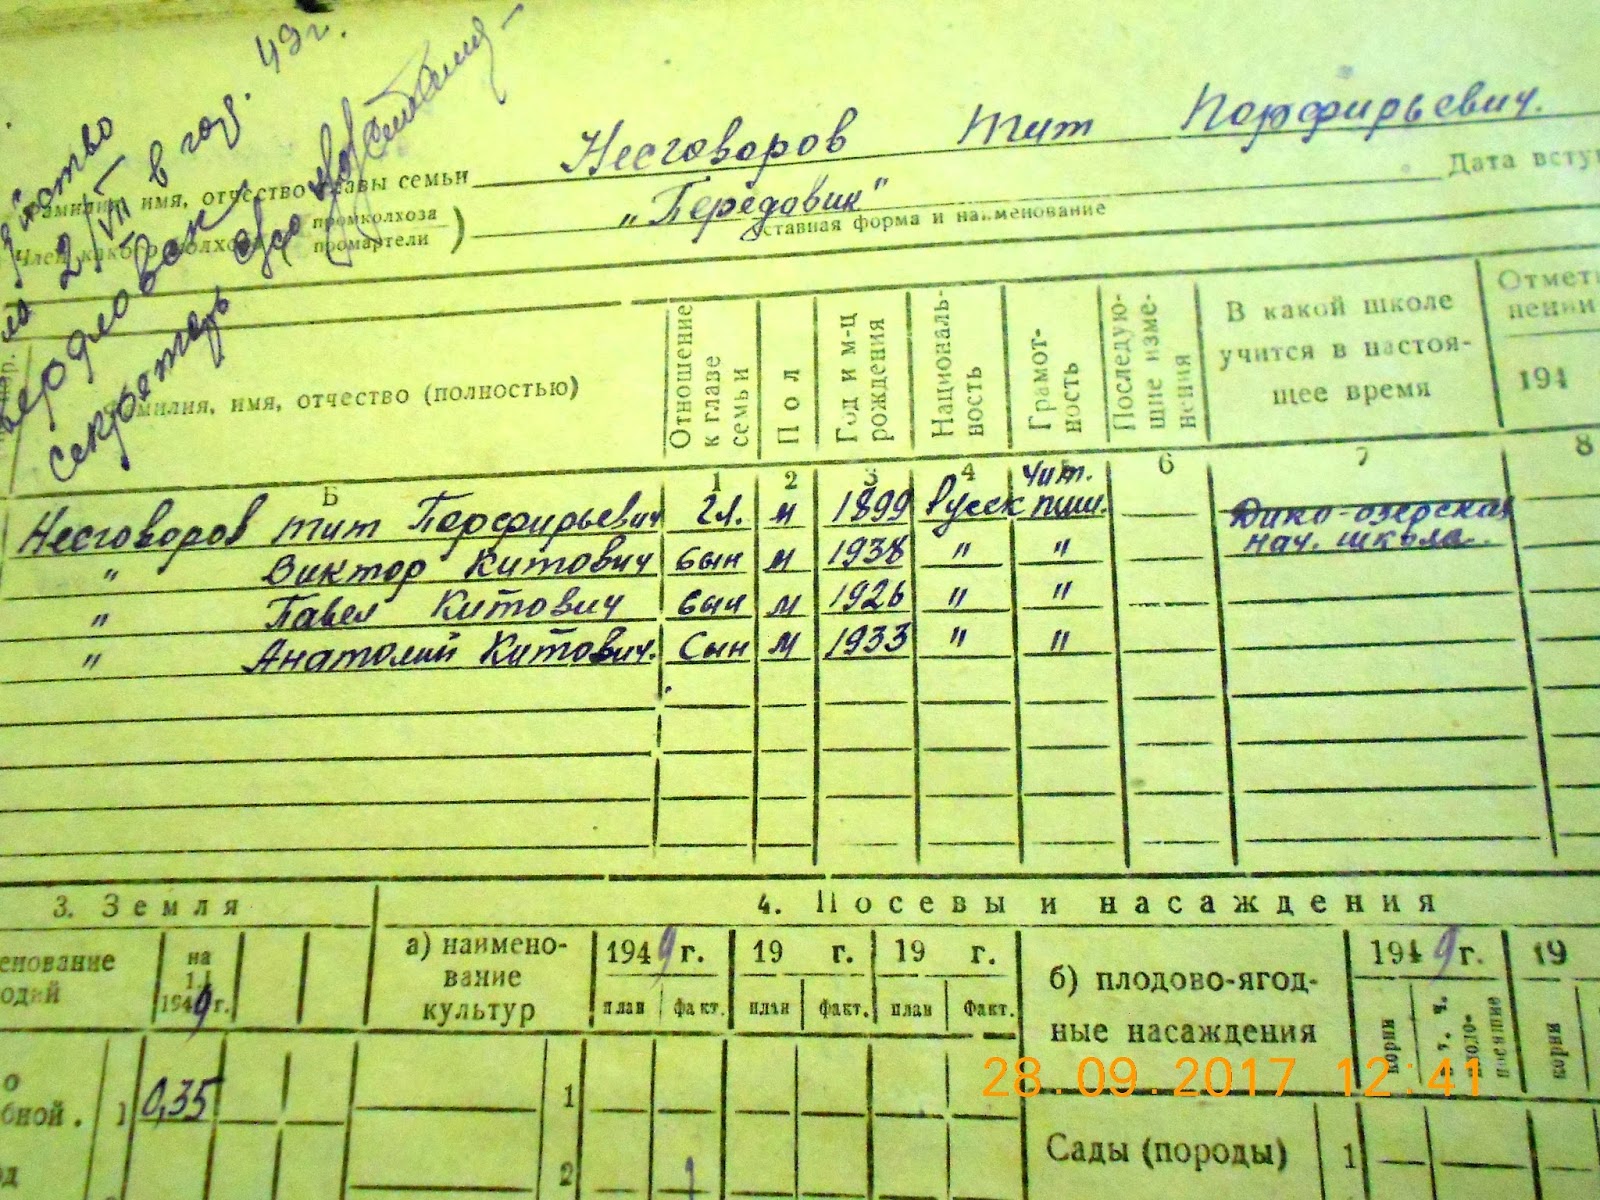 43 г.
в год.
2/VII
секретарь
Фамилия, имя, отчество главы семьи Несговоров Тит Порфирьевич.
Дата вступ
Член какого колхоза промколхоза промартели ) „Передовик"
уставная форма и наименование
Фамилия, имя, отчество (полностью)
Отношение к главе семьи
Пол
Год и м-ц рождения
Националь- ность
Грамот- ность
Последую- щие изме- нения
В какой школе учится в настоя- щее время
194
Б 1 2 3 4 5 6 7 8
Несговоров Тит Порфирьевич Гл. м 1899 Русск Чит. пиш. Дико-озерская
" Виктор Китович сын м 1938 " " нач. школа.
" Павел Китович сын м 1926 " "
" Анатолий Китович. Сын м 1933 " "
3. Земля
4. Посевы и насаждения
на 1/I 1949 г.
а) наимено- вание культур
1949 г. 19 г. 19 г.
план факт. план факт. план факт.
б) плодово-ягод- ные насаждения
1949 г. 19
корни
в т. ч. плодо- носящие
корни
бной . 1 0,35
1
2
Сады (породы) 1
28.09.2017 12:41